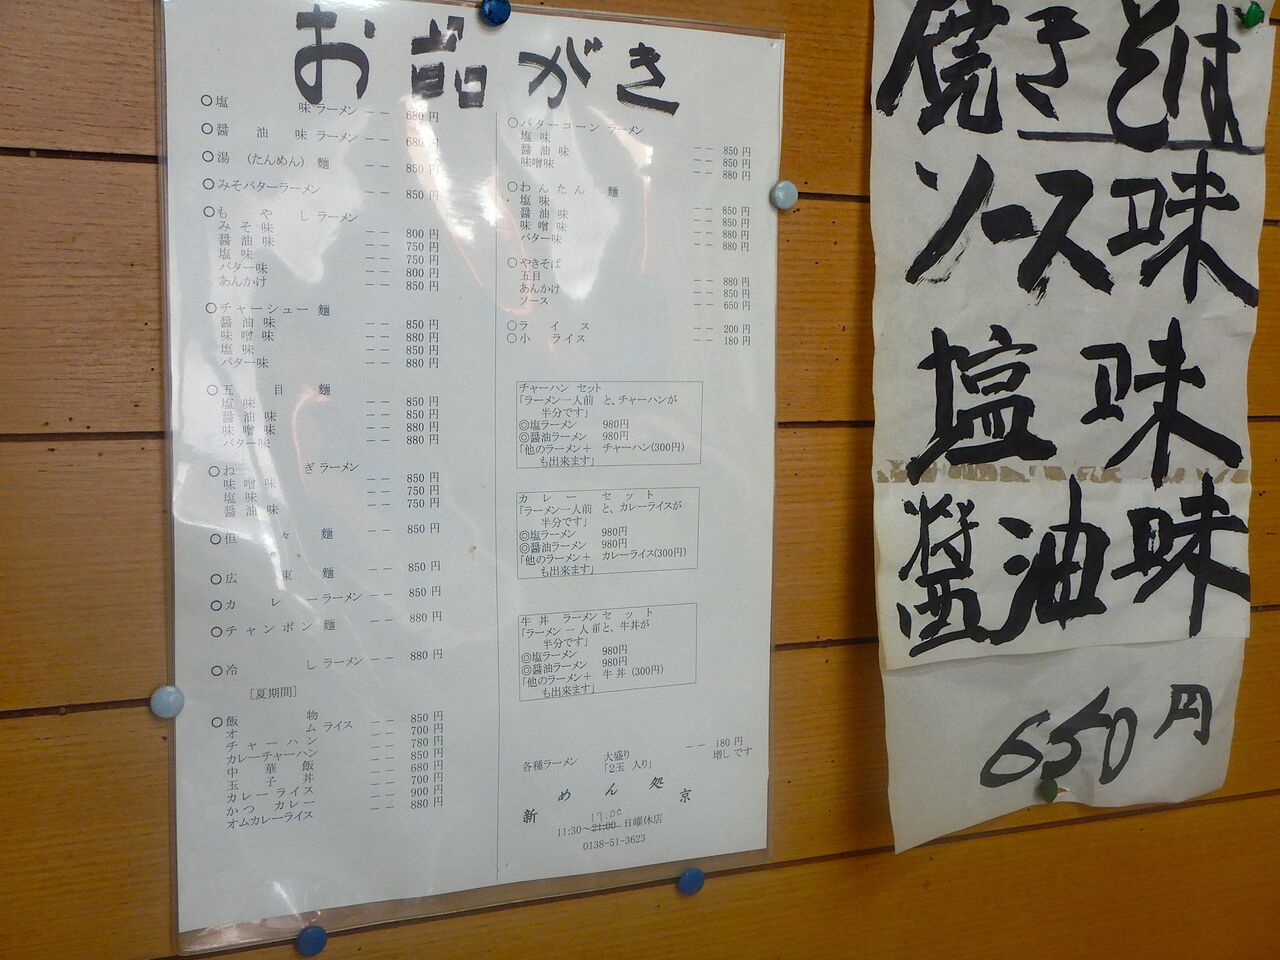 お品がき
○塩味ラーメン -- 680円
○醤油味ラーメン -- 680円
○湯(たんめん)麺 -- 850円
○みそバターラーメン -- 850円
○もやしラーメン
みそ味 -- 800円
醤油味 -- 750円
塩味 -- 750円
バター味 -- 800円
あんかけ -- 850円
○チャーシュー麺
醤油味 -- 850円
味噌味 -- 880円
塩味 -- 850円
バター味 -- 880円
○五目麺
塩味 -- 850円
醤油味 -- 850円
味噌味 -- 880円
バター味 -- 880円
○ねぎラーメン
味噌味 -- 850円
塩味 -- 750円
醤油味 -- 750円
○但々麺 -- 850円
○広東麺 -- 850円
○カレーラーメン -- 850円
○チャンポン麺 -- 880円
○冷しラーメン -- 880円
[夏期間]
○飯物
オムライス -- 850円
チャーハン -- 700円
カレーチャーハン -- 780円
中華飯 -- 850円
玉子丼 -- 680円
カレーライス -- 700円
かつカレー -- 900円
オムカレーライス -- 880円
○バターコーンラーメン
塩味 -- 850円
醤油味 -- 850円
味噌味 -- 880円
○わんたん麺
塩味 -- 850円
醤油味 -- 850円
味噌味 -- 880円
バター味 -- 880円
○やきそば
五目 -- 880円
あんかけ -- 850円
ソース -- 650円
○ライス -- 200円
○小ライス -- 180円
チャーハン セット
「ラーメン一人前 と、チャーハンが
半分です」
◎塩ラーメン 980円
◎醤油ラーメン 980円
「他のラーメン+ チャーハン(300円)
も出来ます」
カレーセット
「ラーメン一人前 と、カレーライスが
半分です」
◎塩ラーメン 980円
◎醤油ラーメン 980円
「他のラーメン+ カレーライス(300円)
も出来ます」
牛丼 ラーメンセット
「ラーメン一人前と、牛丼が
半分です」
◎塩ラーメン 980円
◎醤油ラーメン 980円
「他のラーメン+ 牛丼(300円)
も出来ます」
各種ラーメン 大盛り -- 180円
「2玉入り」 増しです
めん処
新京
17:00
11:30~21:00 日曜休店
0138-51-3623
焼きそば
ソース味
塩味
醤油味
650円